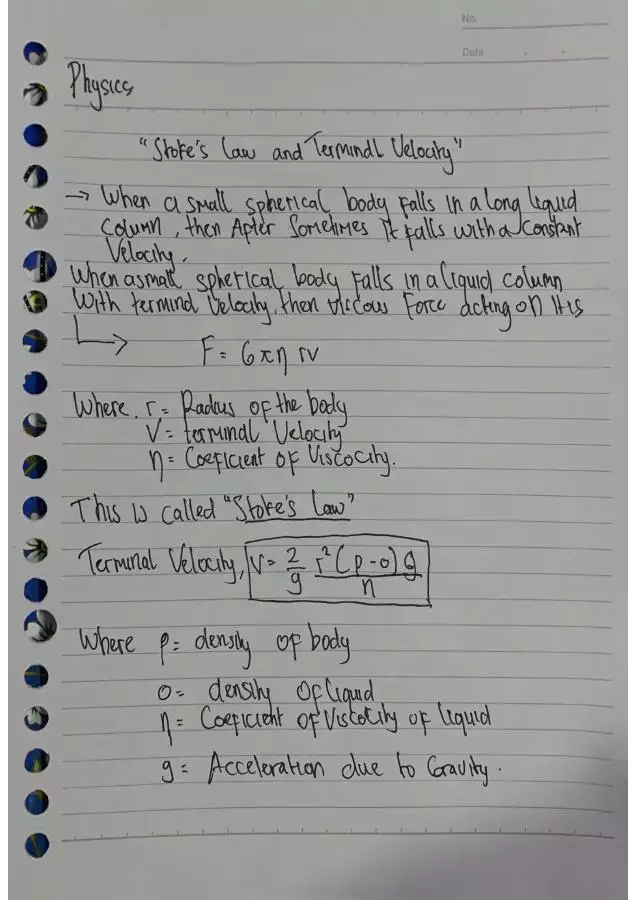 No.
Date
Physics
"Stoke's Law and Terminal Velocity"
→ When a small spherical body falls in a long liquid
column, then After Sometimes It falls with a Constant
Velocity.
When a small spherical body falls in a liquid column
With terminal Velocity, then viscous Force acting on It is
F = 6πη rv
Where, r = Radius of the body
V = terminal Velocity
η = Coeficient of Viscocity.
This is called "Stoke's Law"
Terminal Velocity, V = 2/9 r²(ρ-σ)g/η
Where ρ = density of body
σ = density Of liquid
η = Coeficient of Viscocity of liquid
g = Acceleration due to Gravity.